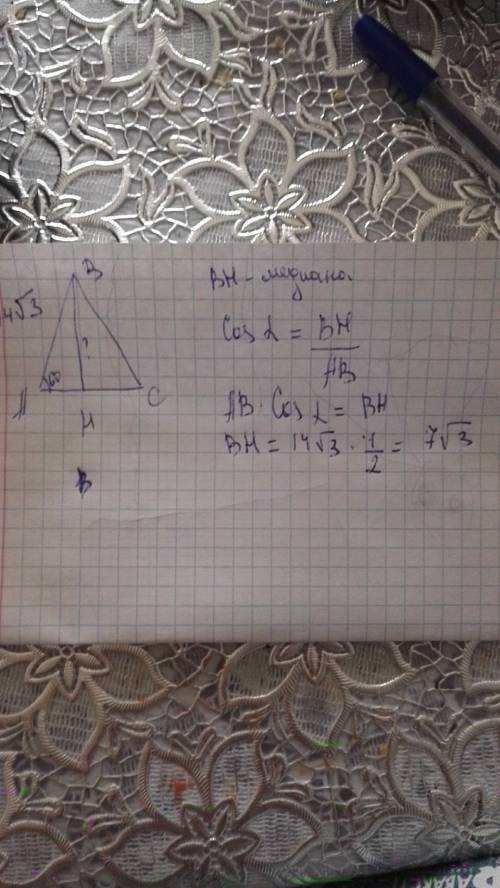 B
4√3
?
60
A
C
H
B
BH - медиана
Cos α = BH / AB
AB · Cos α = BH
BH = 14√3 · 1/2 = 7√3